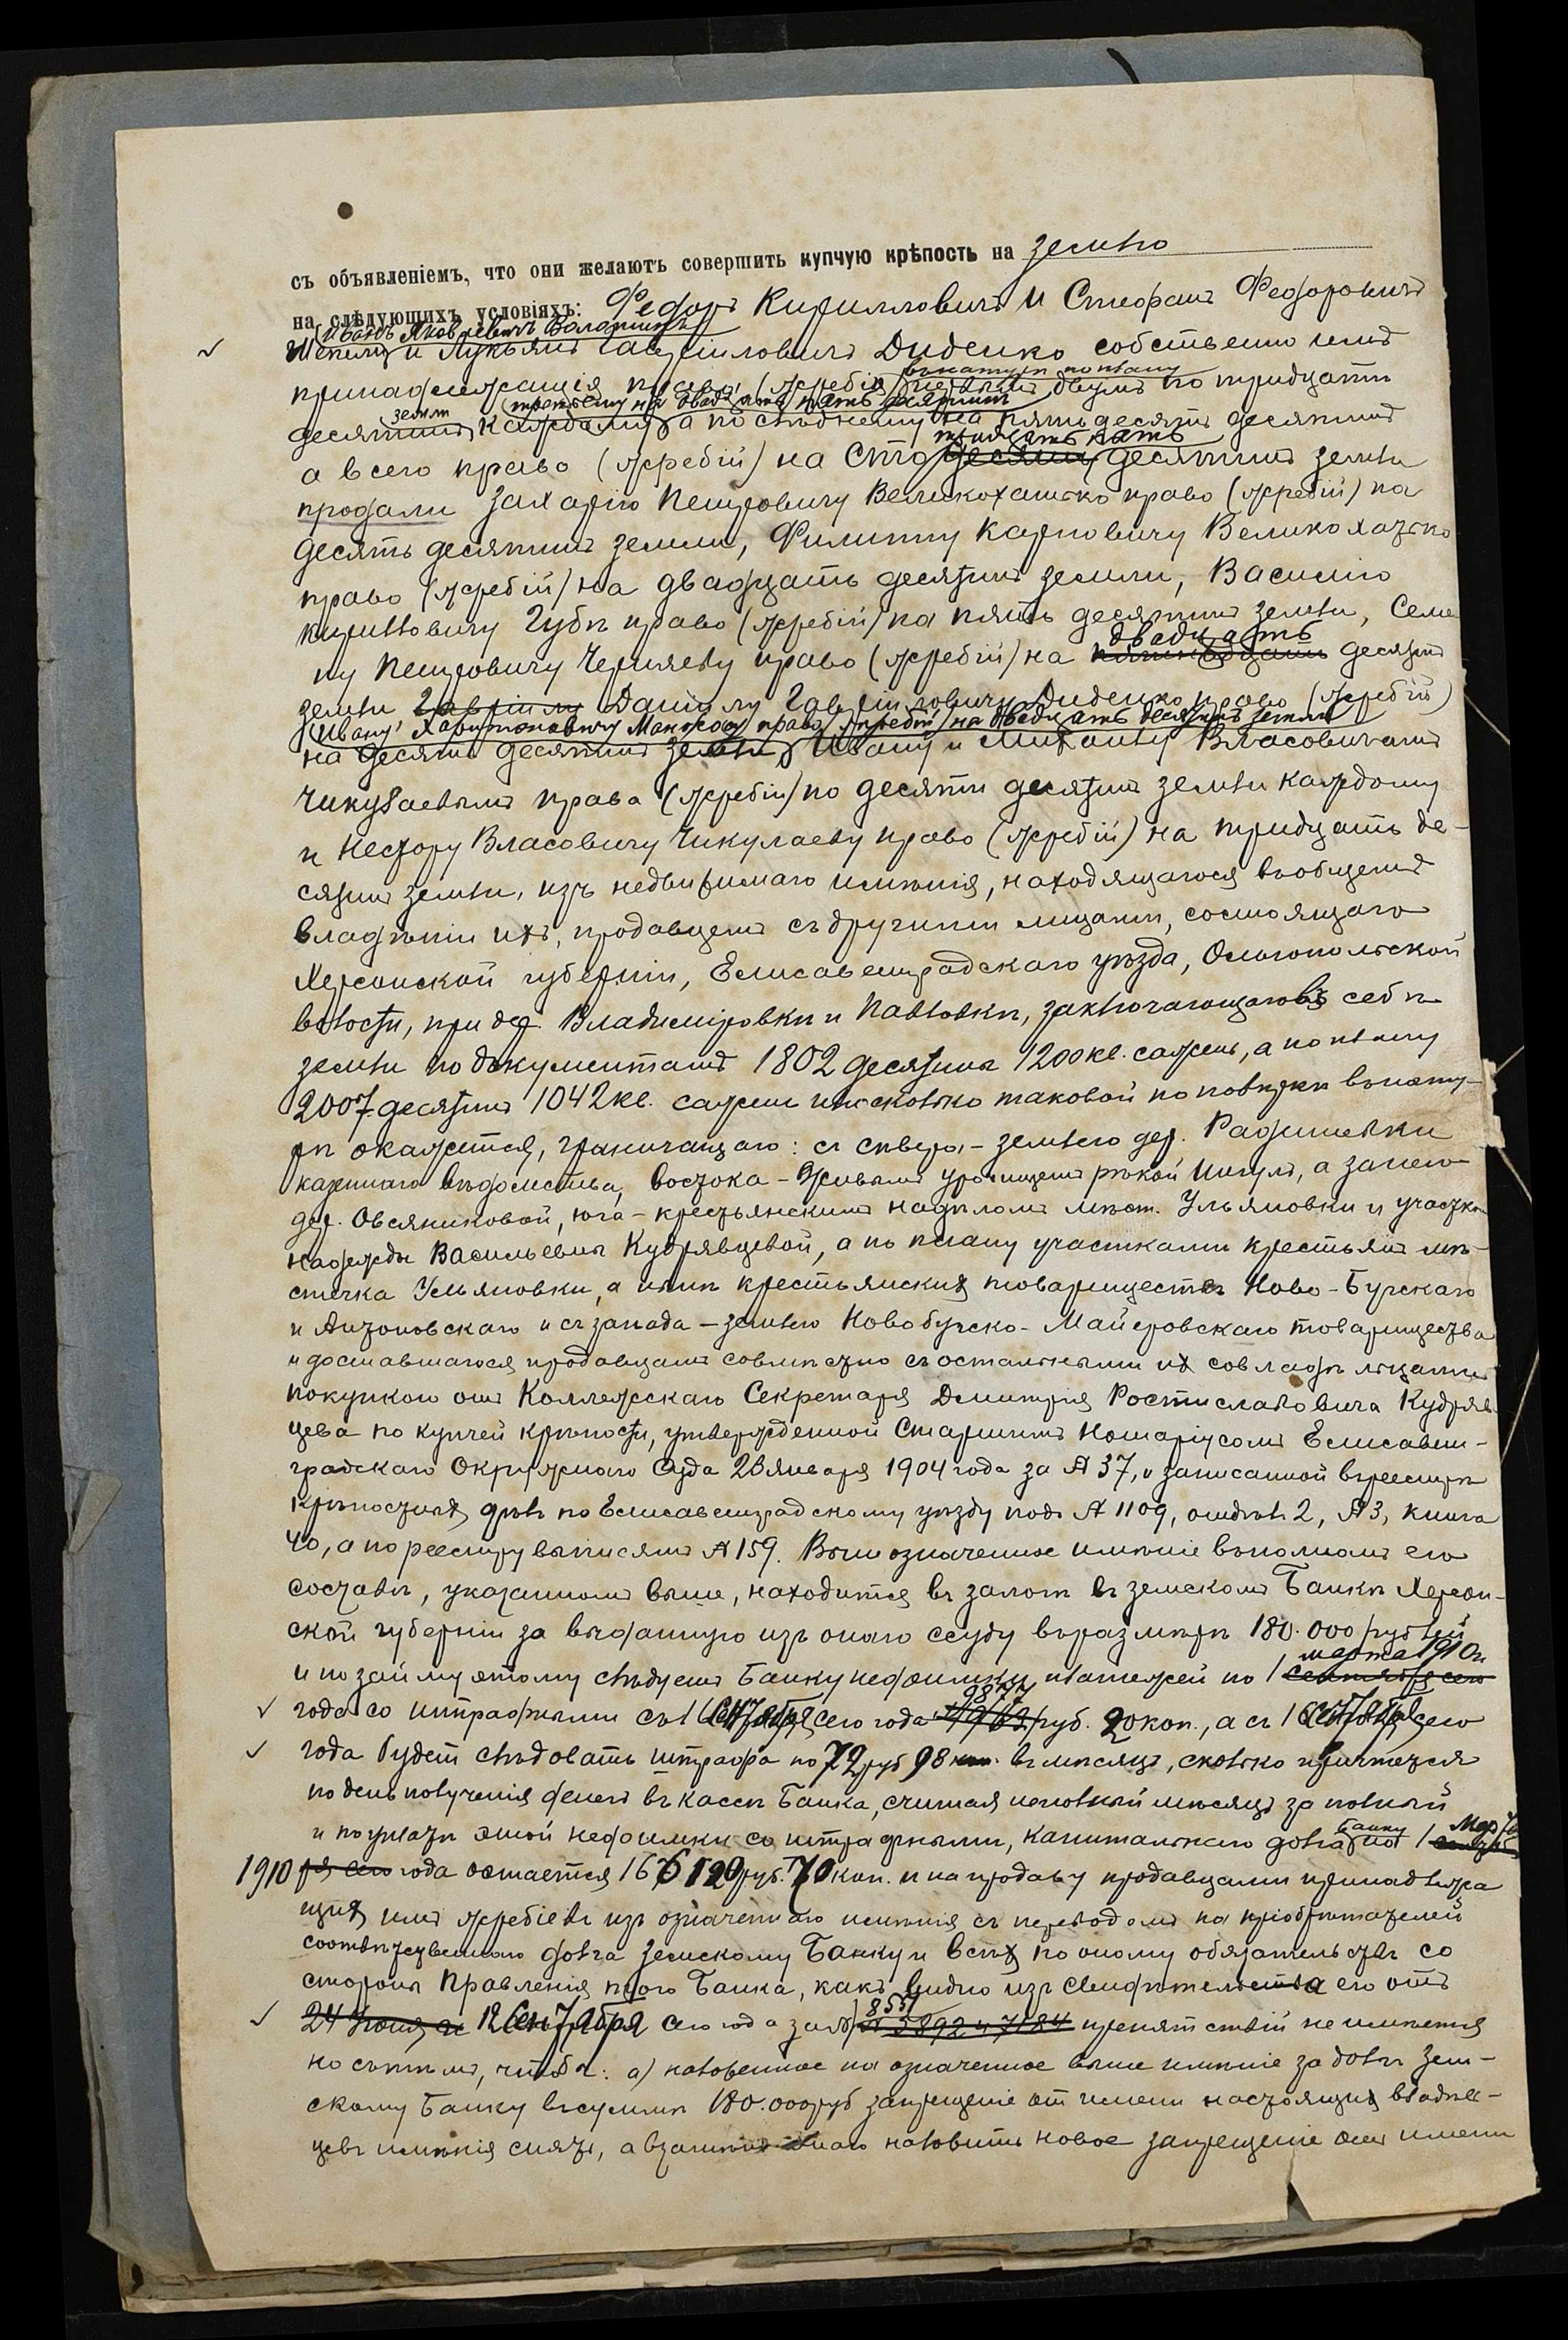 съ объявленіемъ, что они желаютъ совершить купчую крѣпость на землю
на слѣдующихъ условіяхъ: Федоръ Кирилловичъ и Стефанъ Федоровичъ
Иванъ Яковлевичъ Волошинъ
и Лукьянъ Гавріиловичъ Диденко собственно имъ
въ натурѣ по плану
принадлежащія права (жребіи) первымъ двумъ по тридцать
земли третьему на двадцать пять десятинъ
десятинъ каждому а послѣднему на пятьдесятъ десятинъ
тридцать пять
а всего право (жребій) на сто десятинъ земли
продали Захарію Петровичу Великохатько право (жребій) на
десять десятинъ земли, Филиппу Карповичу Великохатько
право (жребій) на двадцать десятинъ земли, Василію
Кирилловичу Губѣ право (жребій) на пять десятинъ земли, Семе
двадцать
ну Петровичу Черняеву право (жребій) на десятинъ
земли Гавріилу Даніилу Гавріиловичу Диденко право (жребій)
Ивану Харитоновичу право (жребій) на двадцать десятинъ земли
на десять десятинъ земли Ивану и Михаилу Власовичамъ
Чикулаевымъ права (жребіи) по десяти десятинъ земли каждому
и Нестору Власовичу Чикулаеву право (жребій) на тридцать де-
сятинъ земли, изъ недвижимаго имѣнія, находящагося въ общемъ
владѣніи ихъ, продавцевъ съ другими лицами, состоящаго
Херсонской губерніи, Елисаветградскаго уѣзда, Ольгопольской
волости, при дер. Владиміровкѣ и Павловкѣ, заключающаго въ себѣ
земли по документамъ 1802 десятины 1200 кв. сажень, а по плану
2007 десятинъ 1042 кв. сажени или сколько таковой по повѣркѣ въ нату-
рѣ окажется, граничащаго: съ сѣвера – землею дер.
казеннаго вѣдомства, востока – живымъ урочищемъ рѣкой Ингулъ, а за нею
дер. Овсяниковой, юга – крестьянскимъ надѣломъ мѣст. Ульяновки и участка
Надежды Васильевны Кудрявцевой, а по плану участками крестьянъ мѣ-
стечка Ульяновки, а нынѣ крестьянскихъ товариществъ Ново-Бугскаго
и Антоновскаго и съ запада – землею Новобугско-Майеровскаго товарищества
и доставшагося продавцамъ совмѣстно съ остальными ихъ совладѣльцами
покупкою отъ Коллежскаго Секретаря Дмитрія Ростиславовича Кудряв
цева по купчей крѣпости, утвержденной Старшимъ Нотаріусомъ Елисавет-
градскаго Окружнаго Суда 28 Января 1904 года за № 37, и записанной въ реестрѣ
крѣпостныхъ дѣлъ по Елисаветградскому уѣзду подъ № 1109, отдѣлъ 2, № 3, книга
40, а по реестру выписямъ № 159. Вышеозначенное имѣніе въ полномъ его
составѣ, указанномъ выше, находится въ залогѣ въ Земскомъ Банкѣ Херсон-
ской губерніи за выданную изъ онаго ссуду въ размѣрѣ 180.000 рублей
марта 1910 г.
и по займу этому слѣдуетъ Банку недоимки, платежей по 1 сентября сего
года со штрафными съ 1 Сентября сего года руб. 20 коп., а съ 1 Сентября сего
года будетъ слѣдовать штрафа по 72 руб 98 коп. въ мѣсяцъ, сколько причтется
по день полученія денегъ въ кассѣ Банка, считая неполный мѣсяцъ за полный
Банку Марта
и по уплатѣ этой недоимки со штрафными, капитальнаго долга по 1
1910 ря сего года остается руб. 70 коп. и на продажу продавцами принадлежа
щихъ имъ жребіевъ изъ означеннаго имѣнія съ переводомъ на пріобрѣтателей
соотвѣтственнаго долга Земскому Банку и всѣхъ по оному обязательствъ со
стороны Правленія того Банка, какъ видно изъ свидѣтельства его отъ
8551
24 Іюня 12 Сентября сего года за № препятствій не имѣется
но съ тѣмъ, чтобы: а) наложенное на означенное выше имѣніе за долгъ Зем-
скому Банку въ суммѣ 180.000 руб запрещеніе отъ имени настоящихъ владѣль-
цевъ имѣнія снять, а взамѣнъ наложить новое запрещеніе отъ имени